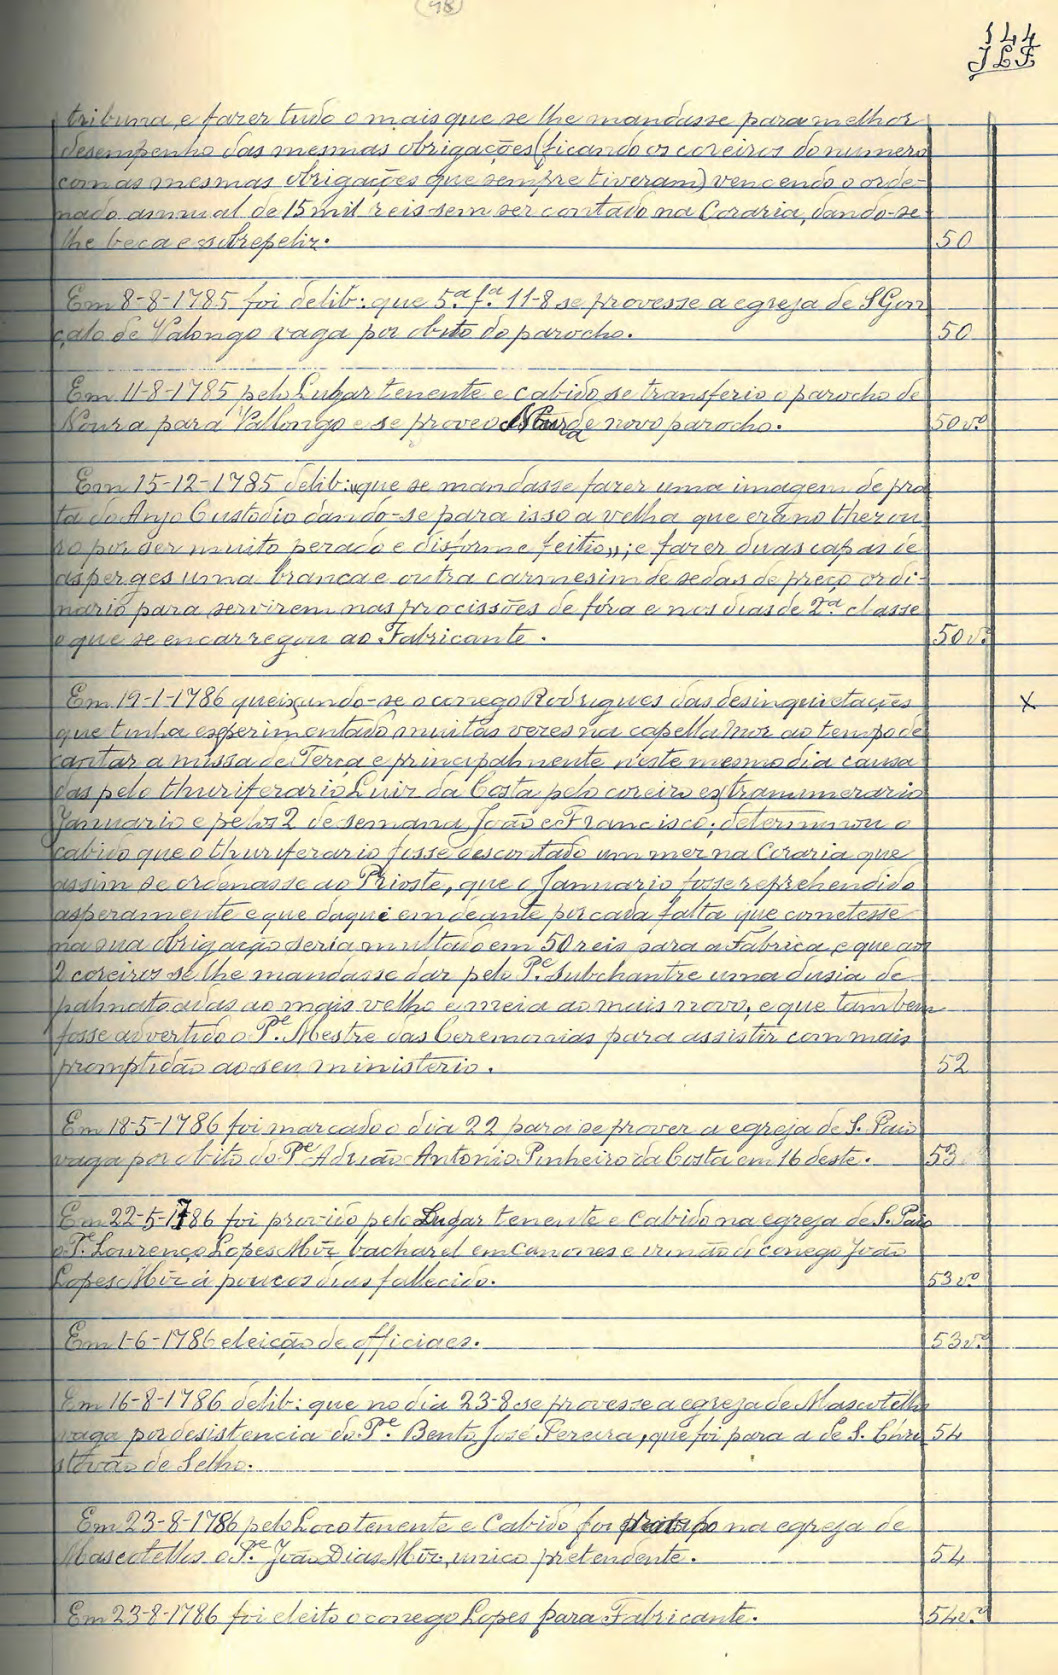 (98)
144
JLF
tribuna, e fazer tudo o mais que se lhe mandasse para melhor
desempenho das mesmas obrigações (ficando os coreiros do numero
com as mesmas obrigações que sempre tiveram) vencendo o orde-
nado annual de 15 mil reis sem ser contado na Coraria, dando-se-
lhe beca e sobrepeliz. 50
Em 8-8-1785 foi delib: que 5.ª f.ª 11-8 se provesse a egreja de S Gon
çalo de Valongo vaga por obito do parocho. 50
Em 11-8-1785 pelo Lugar tenente e cabido se transferio o parocho de
Noura para Vallongo e se proveo de novo parocho. 50 v.º
Em 15-12-1785 delib: "que se mandasse fazer uma imagem de pra
ta do Anjo Custodio dando-se para isso a velha que era no thezou
ro por ser muito pezado e disforme feitio"; e fazer duas capas de
asperges uma branca e outra carmesim de sedas de preço ordi-
nario para servirem nas procissões de fóra e nos dias de 2.ª classe
o que se encarregou ao Fabricante. 50 v.º
Em 19-1-1786 queixando-se o conego Rodrigues das desinquietações X
que tinha experimentado muitas vezes na capella mor ao tempo de
cantar a missa de Terça e principalmente n'este mesmo dia causa
das pelo thuriferario Luiz da Costa pelo coreiro extranumerario
Januario e pelos 2 de semana João e Francisco; determinou o
cabido que o thuriferario fosse descontado um mez na Coraria que
assim se ordenasse ao Prioste, que o Januario fosse reprehendido
asperamente e que daqui em deante por cada falta que cometesse
na sua obrigação seria multado em 50 reis para a Fabrica, e que aos
2 coreiros se lhe mandasse dar pelo P.e Subchantre uma dusia de
palmatoadas ao mais velho e meia ao mais novo, e que tambem
fosse advertido o P.e Mestre das Ceremonias para assistir com mais
promptidão ao seu ministerio. 52
Em 18-5-1786 foi marcado o dia 22 para se prover a egreja de S. Paio
vaga por obito do P.e Adrião Antonio Pinheiro da Costa em 16 deste. 53
Em 22-5-1786 foi provido pelo Lugar tenente e Cabido na egreja de S. Paio
o P.e Lourenço Lopes Mĩz bacharel em Canones e irmão do conego João
Lopes Mĩz á poucos dias fallecido. 53 v.º
Em 1-6-1786 eleição de officiaes. 53 v.º
Em 16-8-1786 delib: que no dia 23-8 se provesse a egreja de Mascotellos
vaga por desistencia do P.e Bento José Pereira, que foi para a de S. Chri 54
stovão de Selho.
Em 23-8-1786 pelo Locotenente e Cabido foi na egreja de
Mascotellos o P.e João Dias Mĩz, unico pretendente. 54
Em 23-8-1786 foi eleito o conego Lopes para Fabricante. 54 v.º